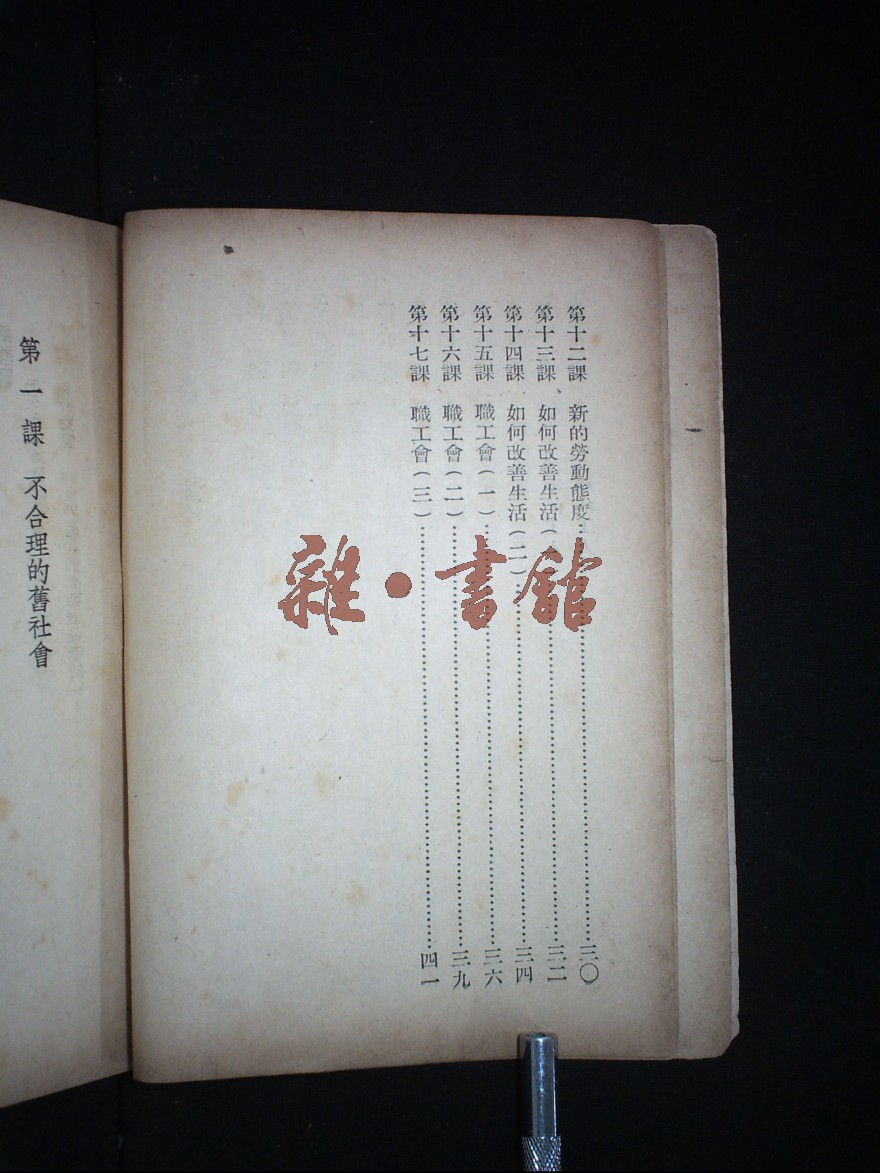 第十二課 新的勞動態度……三〇
第十三課 如何改善生活(一)……三二
第十四課 如何改善生活(二)……三四
第十五課 職工會(一)……三六
第十六課 職工會(二)……三九
第十七課 職工會(三)……四一
第一課 不合理的舊社會
雜·書館